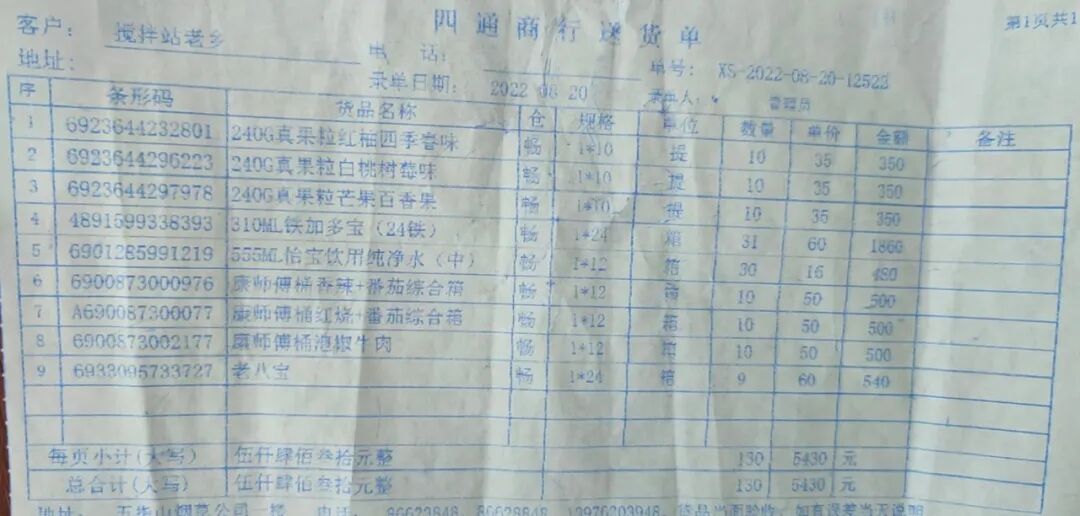 四通商行送货单
第1页共1
客户： 搅拌站老乡 电 话：
地址： 单号： XS-2022-08-20-12522
录单日期： 2022 08 20 录单人： 管理员
序 条形码 货品名称 仓 规格 单位 数量 单价 金额 备注
1 6923644232801 240G真果粒红柚四季春味 畅 1*10 提 10 35 350
2 6923644296223 240G真果粒白桃树莓味 畅 1*10 提 10 35 350
3 6923644297978 240G真果粒芒果百香果 畅 1*10 提 10 35 350
4 4891599338393 310ML铁加多宝（24铁） 畅 1*24 箱 31 60 1860
5 6901285991219 555ML怡宝饮用纯净水（中） 畅 1*12 箱 30 16 480
6 6900873000976 康师傅桶香辣+番茄综合箱 畅 1*12 箱 10 50 500
7 A690087300077 康师傅桶红烧+番茄综合箱 畅 1*12 箱 10 50 500
8 6900873002177 康师傅桶泡椒牛肉 畅 1*12 箱 10 50 500
9 6933095733727 老八宝 畅 1*24 箱 9 60 540
每页小计(大写) 伍仟肆佰叁拾元整 130 5430 元
总合计(大写) 伍仟肆佰叁拾元整 130 5430 元
地址： 五指山烟草公司一楼 电话： 86623848 86628848 13976203948 货品当面验收，如有误差当天说明